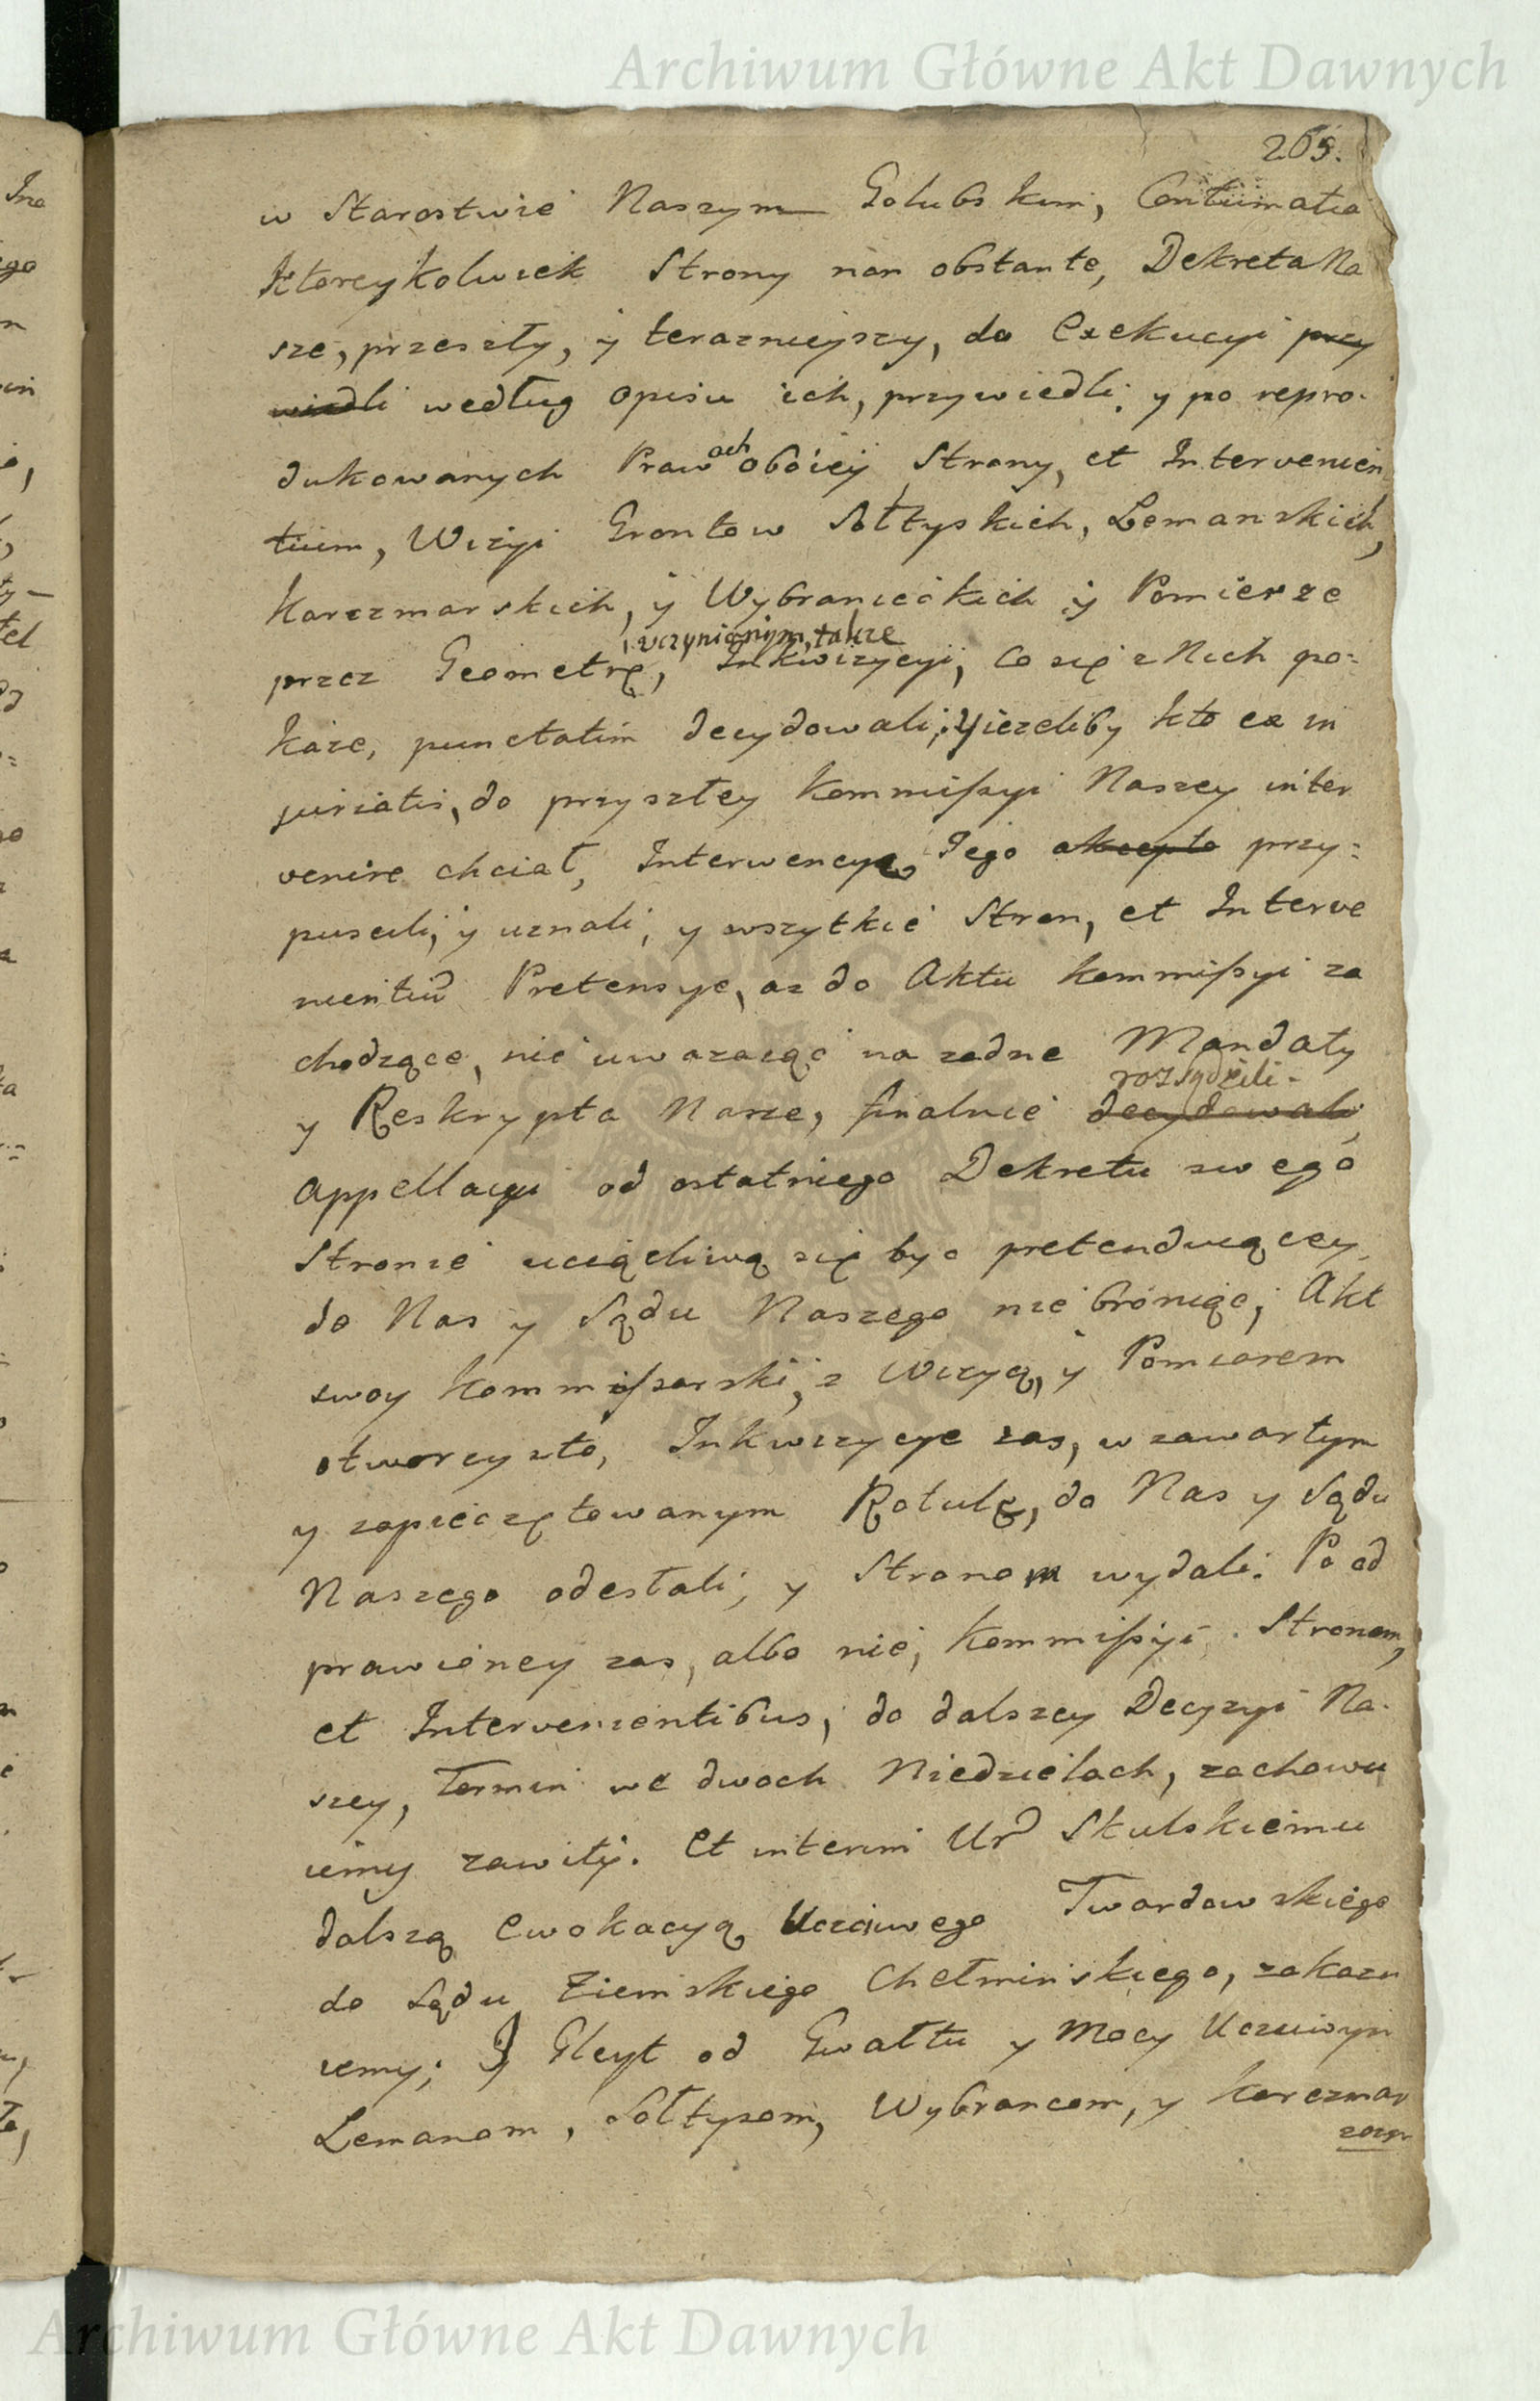 Archiwum Główne Akt Dawnych
265.
w Starostwie Naszym Golubskim, Contumatia
ktoreykolwiek Strony non obstante, Dekreta Na
sze, przeszły, y terazniejszy, do Exekucyi przy
wiedli według opisu ich, przywiedli; y po repro-
dukowanych Prawach oboiey Strony, et Intervenien
tium, Wizyi Grontow Sołtyskich, Lemanskich,
Karczmarskich, y Wybranieckich y Pomierze
uczynionym, takze
przez Geometrę, Inkwizycyi, co się z Nich po-
kaze, punctatim decydowali; Y iezeliby kto ex in
juriatis, do przyszłey Kommissyi Naszey inter
venire chciał, Interwencyą Jego akcepto przy-
puscili, y uznali, y wszytkie Stron, et Interve
nientiu Pretensye, az do Aktu Kommissyi za
chodzące, nie uwazaiąc na zadne Mandaty
rozsądzili.
y Reskrypta Nasze, finalnie decydowali,
Appellacyi od ostatniego Dekretu swego
Stronie uciązliwą się byc pretenduiącey,
do Nas y Sądu Naszego nie broniąc, Akt
swoy Kommissarski, z Wizyą, y Pomiarem
otworzysto, Inkwizycye zas, w zawartym
y zapieczętowanym Rotule, do Nas y Sądu
Naszego odesłali, y Stronom wydali. Po od
prawioney zas, albo nie, Kommissyi Stronom,
et Intervenientibus, do dalszey Decyzyi Na-
szey, Termin we dwoch Niedzielach, zachowu
iemy zawity. Et interim Ur Skulskiemu
dalszą Ewokacyą Uczciwego Twardowskiego
do Sądu Ziemskiego Chełminskiego, zakazu
iemy; Y Gleyt od Gwałtu y Mocy Uczciwym
Lemanom, Sołtysom, Wybrancom, y Karczmar
zom
Archiwum Główne Akt Dawnych